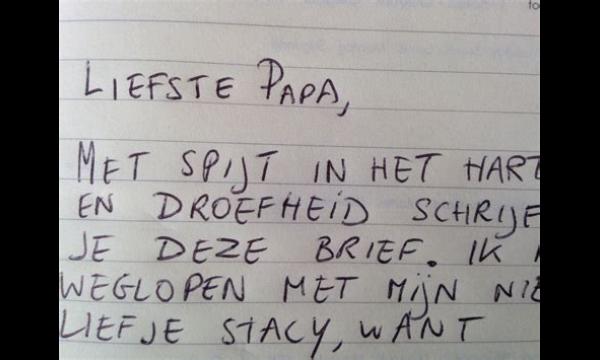 LIEFSTE PAPA,
MET SPIJT IN HET HART
EN DROEFHEID SCHRIJF
JE DEZE BRIEF. IK
WEGLOPEN MET MIJN NIE
LIEFJE STACY, WANT